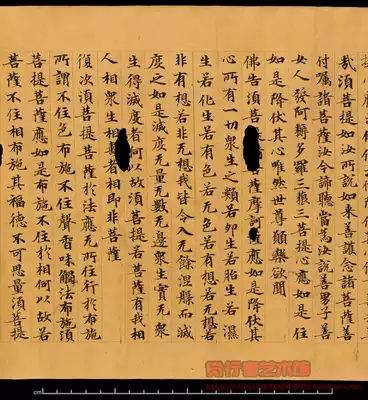 哉須菩提如汝所說如來善護念諸菩薩善
付囑諸菩薩汝今諦聽當為汝說善男子善
女人發阿耨多羅三藐三菩提心應如是住
如是降伏其心唯然世尊願樂欲聞
佛告須菩提菩薩摩訶薩應如是降伏其
心所有一切衆生之類若卵生若胎生若濕
生若化生若有色若无色若有想若无想若
非有想若非无想我皆令入无餘涅槃而滅
度之如是滅度无量无數无邊衆生實无衆
生得滅度者何以故須菩提若菩薩有我相
人相衆生相者相即非菩薩
復次須菩提菩薩於法應无所住行於布施
所謂不住色布施不住聲香味觸法布施須
菩提菩薩應如是布施不住於相何以故若
菩薩不住相布施其福德不可思量須菩提
cm